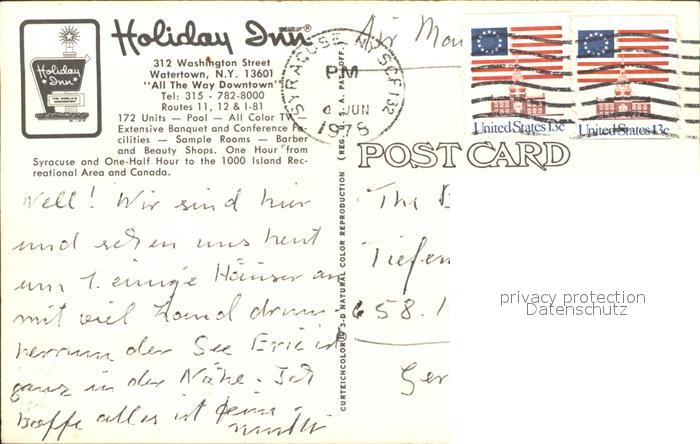 Holiday Inn®
312 Washington Street
Watertown, N.Y. 13601
"All The Way Downtown"
Tel: 315 - 782-8000
Routes 11, 12 & I-81
172 Units — Pool — All Color TV
Extensive Banquet and Conference Fa-
cilities — Sample Rooms — Barber
and Beauty Shops. One Hour from
Syracuse and One-Half Hour to the 1000 Island Rec-
reational Area and Canada.
Holiday Inn
Air
SYRACUSE NY SCF 132
PM
JUN
1978
United States 13c
United States 13c
POST CARD
CURTEICHCOLOR® 3-D NATURAL COLOR REPRODUCTION (REG. U.S.A. PAT. OFF.)
Well! Wir sind hier
und sehen uns heut
um 1. einige Häuser an
mit viel Land drum
herrum der See Erie ist
ganz in der Nähe. Ich
hoffe alles ist
The B
Tiefen
658.1
Ger
privacy protection
Datenschutz